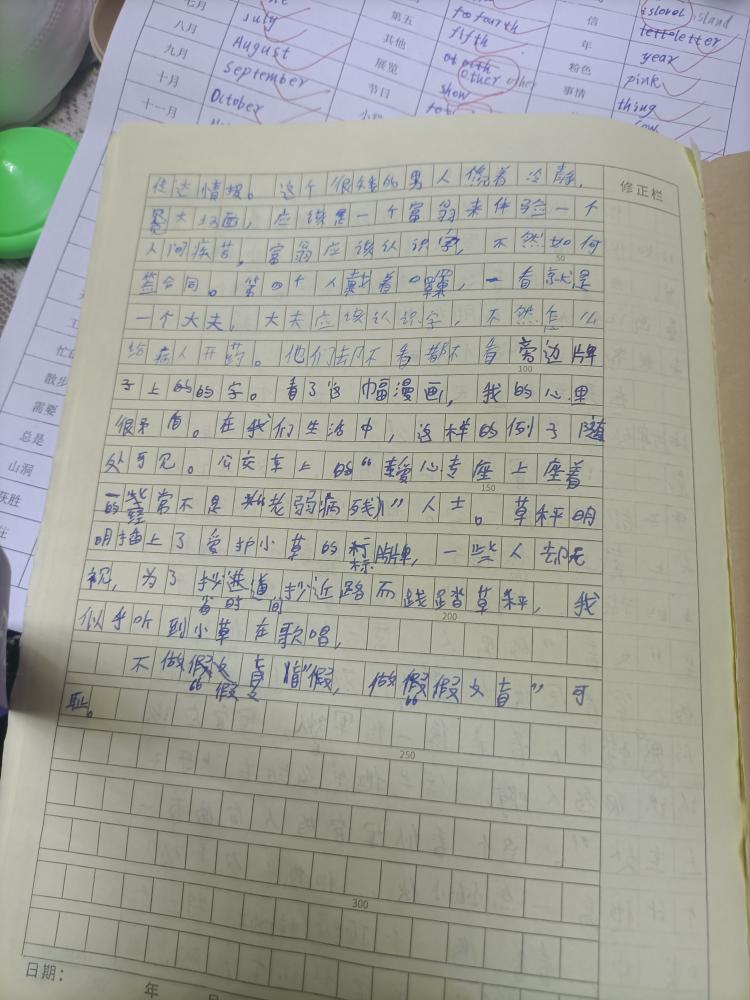 七月
July
八月
August
九月
September
十月
October
十一月
第五
fifth
其他
other
展览
show
节日
to fourth
信
island
letter
年
year
粉色
pink
事情
thing
忙的
散步
需要
总是
山洞
获胜
修正栏
情报。这个很矮的男人像着冷静,
大场面,应该是一个富翁来体验一个
人间疾苦,富翁应该认识字,不然如何
签合同。第四个人戴着口罩,一看就是
一个大夫,大夫应该认识字,不然怎么
给病人开药。他们却不看都不看旁边牌
50
100
子上的的字。看了这幅漫画,我的心里
很矛盾。在我们生活中,这样的例子随
处可见。公交车上的“爱心专座上座着
150
的些常不是老弱病残”人士。草秤明
明插上了爱护小草的标牌,一些人却无
视,为了抄近路而践踏草秤,我
省时间
200
似乎听到小草在歌唱,
不做假文盲
假文
做假文盲”可
耻。
250
300
日期:
年